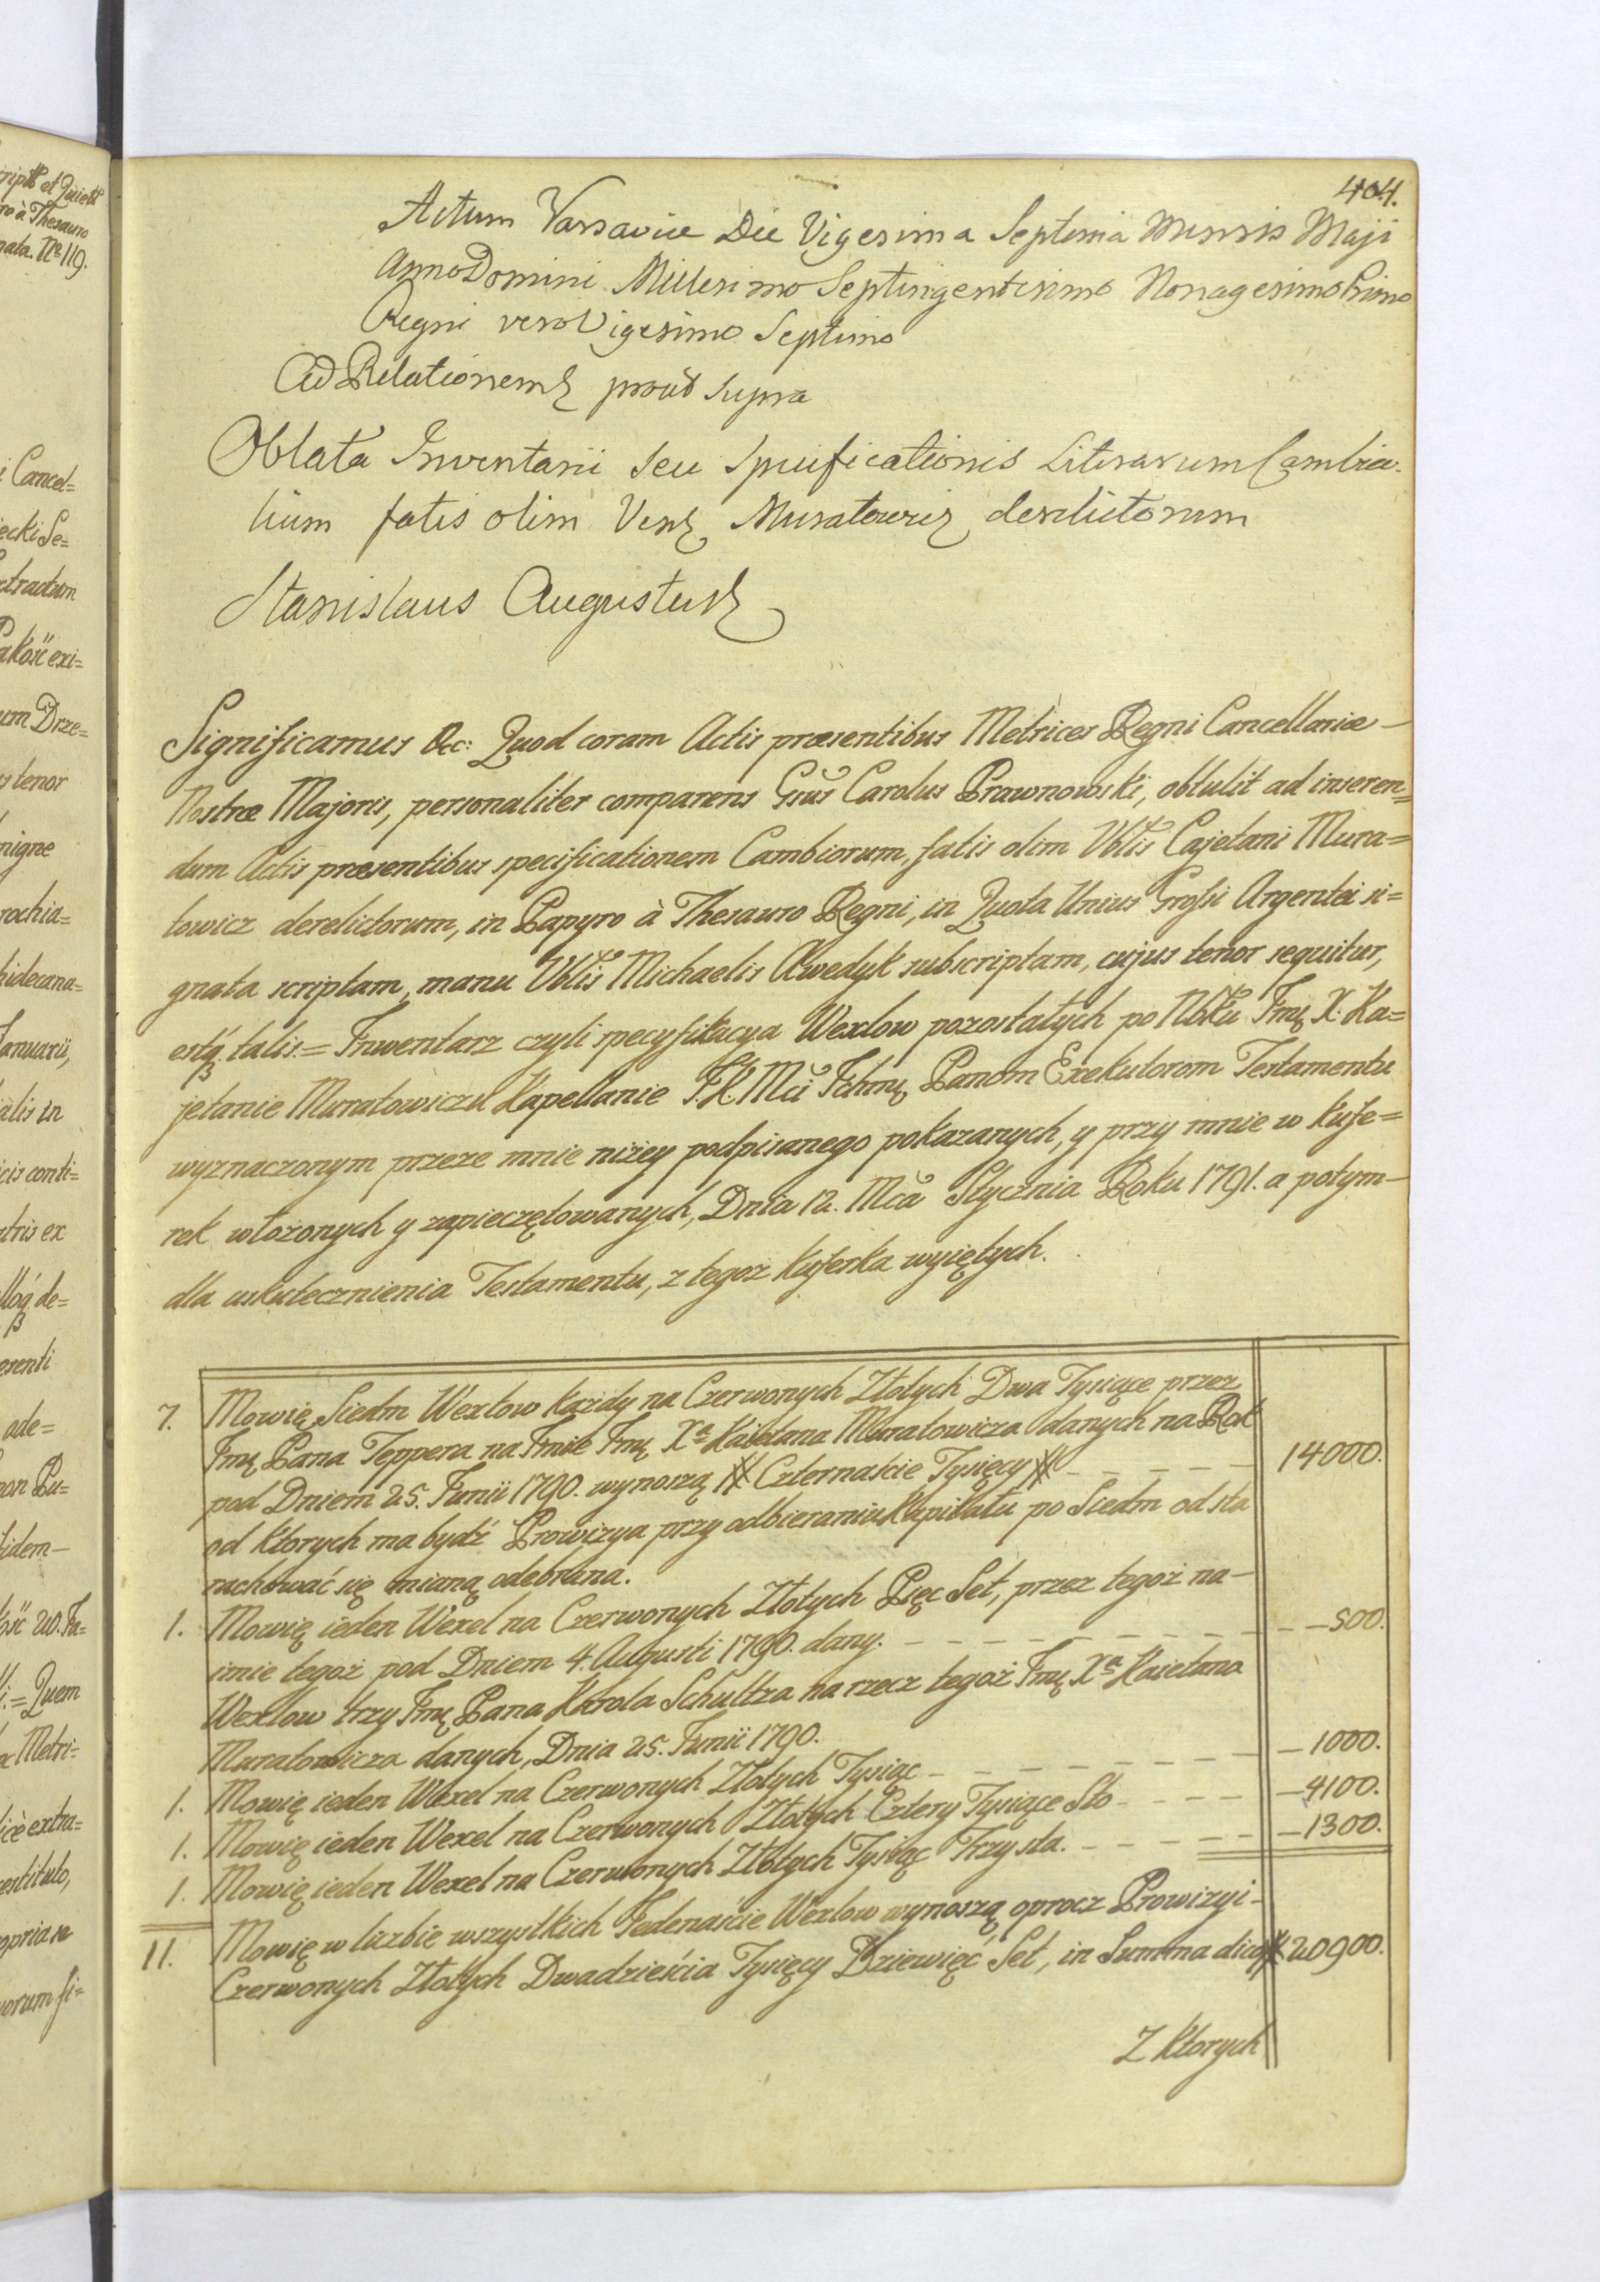 404.
Actum Varsaviæ Die Vigesima Septima Mensis Maji
Anno Domini Millesimo Septingentesimo Nonagesimo Primo
Regni vero Vigesimo Septimo
Ad Relationem prout supra
Oblata Inventarii seu Specificationis Literarum Cambia-
lium fatis olim Muratowicz derelictorum
Stanislaus Augustus
Significamus &c: Quod coram Actis præsentibus Metrices Regni Cancellariæ
Nostræ Majoris, personaliter comparens Gsus Carolus Prawnowski, obtulit ad inseren=
dum Actis præsentibus specificationem Cambiorum, fatis olim Vblis Cajetani Mura=
towicz derelictorum, in Papyro à Thesauro Regni, in Quota Unius Grossi Argentei si=
gnata scriptam, manu Vblis Michaelis Awedyk subscriptam, cujus tenor sequitur,
estq talis:= Inwentarz czyli specyfikacya Wexlow pozostałych po Nbku Jmę X. Ka=
jetanie Muratowiczu Kapellanie J.K.Mci Jchmę Panom Exekutorom Testamentu
wyznaczonym przeze mnie niżey podpisanego pokazanych, y przy mnie w kufe=
rek włozonych y zapieczętowanych, Dnia 12. Mca Stycznia Roku 1791. a potym
dla uskutecznienia Testamentu, z tegoz kuferka wyiętych.
7. Mowię Siedm Wexlow kazdy na Czerwonych Złotych Dwa Tysiące przez
Jmę Pana Teppera na Imie Jmę Xa Kaietana Muratowicza danych na Rok
pod Dniem 25. Junii 1790. wynoszą Czternaście Tysięcy 14000.
od ktorych ma bydź Prowizya przy odbieraniu Kapitału po Siedm od sta
rachować się mianą odebrana.
1. Mowię ieden Wexel na Czerwonych Złotych Pięc Set, przez tegoż na-
imie tegoż pod Dniem 4. Augusti 1790. dany. 500.
Wexlow trzy Jmę Pana Karola Schultza na rzecz tegoż Jmę Xa Kaietana
Muratowicza danych, Dnia 25. Junii 1790.
1. Mowię ieden Wexel na Czerwonych Złotych Tysiąc 1000.
1. Mowię ieden Wexel na Czerwonych Złotych Cztery Tysiące Sto 4100.
1. Mowię ieden Wexel na Czerwonych Złotych Tysiąc Trzysta. 1300.
11. Mowię w liczbie wszystkich Jedenaście Wexlow wynoszą oprocz Prowizyi
Czerwonych Złotych Dwadzieścia Tysięcy Dziewięć Set, in Summa dico 20900.
Z ktorych